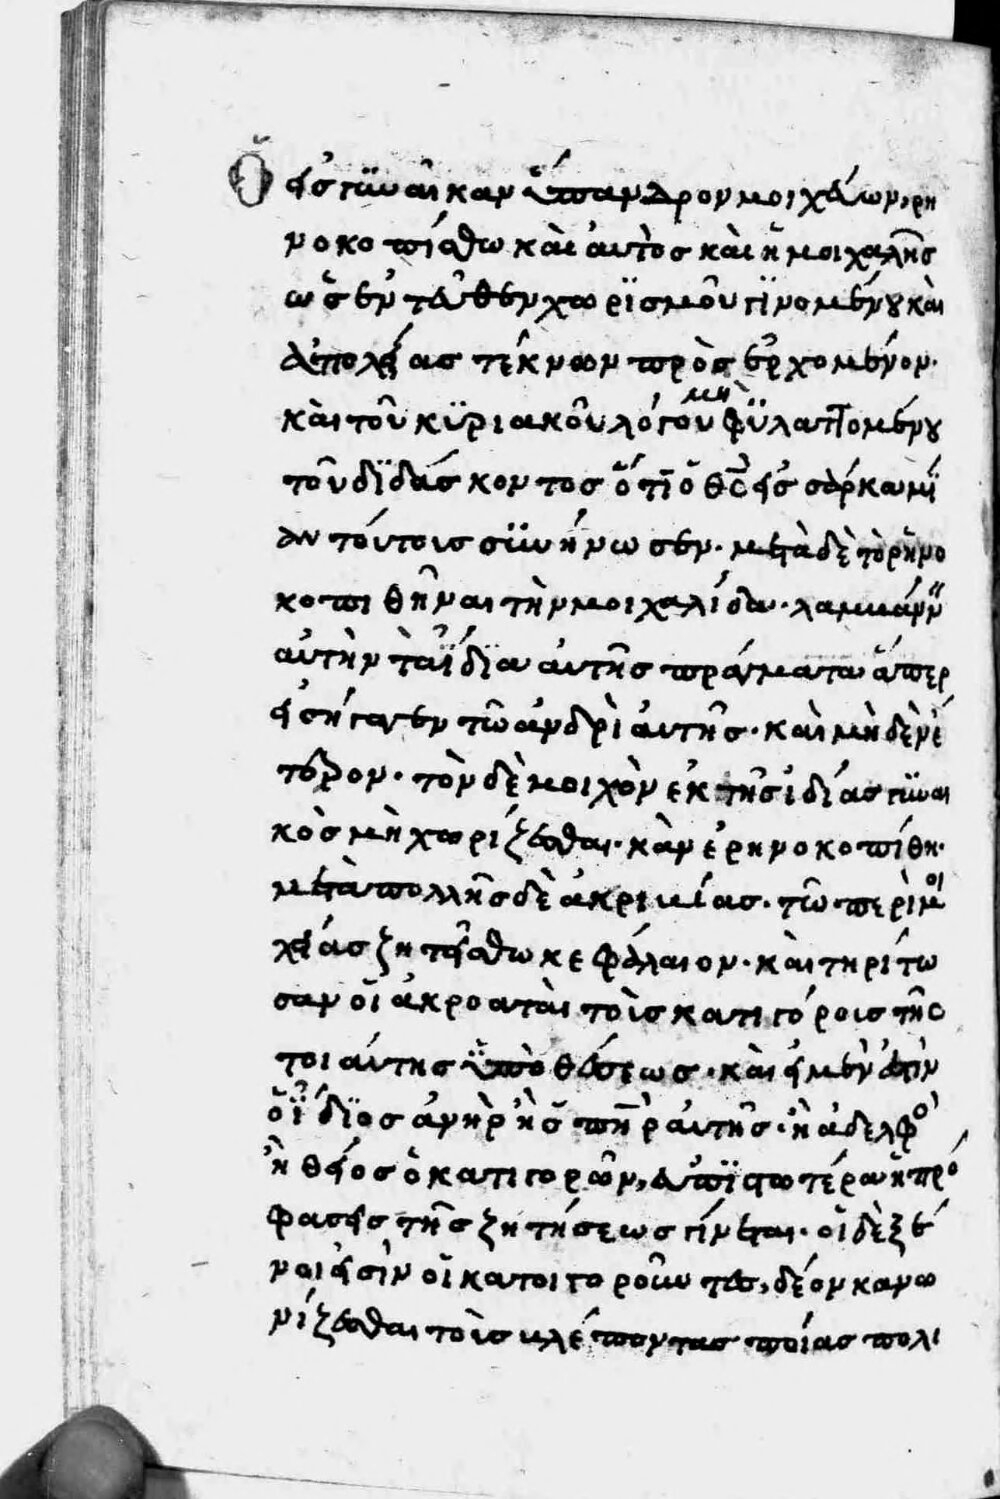 Ὁ εἰς γϋναῖκαν ὕπανδρον μοιχεύων, ρη
νοκοπίσθω καὶ ἀυτὸς καὶ ἡ μοιχαλῆς
ὡς ἐντεῦθεν χωρϊσμοῦ γϊνομένου καὶ
ἀπολείας τέκνων προσερχομένον·
καὶ τοῦ κϋριακοῦ λόγου μὴ φϋλαττομένου
τοῦ δϊδάσκοντος ὅτϊ ὁ θς εἰς σάρκα μϊ
αν τούτοις σϋνήνωσεν· μετὰ δὲ τὸ ρϊνο
κοπιθῆναι τὴν μοιχαλίδα· λαμβάνϊν
αὐτὴν τὰ ἴδϊα ἀυτῆς πράγματα ἅπερ
εἰσήγαγεν τῶ ἀνδρὶ ἀυτῆς· καὶ μηδὲν ἕ
τερον· τὸν δὲ μοιχὸν ἐκ τῆς ἰδίας γϋναι
κὸς μὴ χωρίζεσθαι· κἂν ἐρηνοκοπίθη·
μετὰ πολλῆς δὲ ἀκριβίας· τῶ περὶ μοι
χείας ζητείσθω κεφάλαιον· καὶ τηρίτω
σαν οἱ ἀκροαταὶ τοὶς κατιγόροις τῆς
τοιάυτης ὑποθέσεως· καὶ εἰ μὲν ἐστὶν
ὁ ΐδϊος ἀνὴρ ἢ ὁ πηρ ἀυτῆς· ἢ ἀδελφὸ
ἢ θεῖος ὁ κατιγορῶν, ἀπϊστωτέρα ἡ πρό
φασεις τῆς ζητήσεως γίνεται· οἱ δὲ ξέ
νοι εἰσὶν οἱ κατοιγοροῦντες, δέον κανω
νίζεσθαι τοὶς βλέποντας ποίας πολι